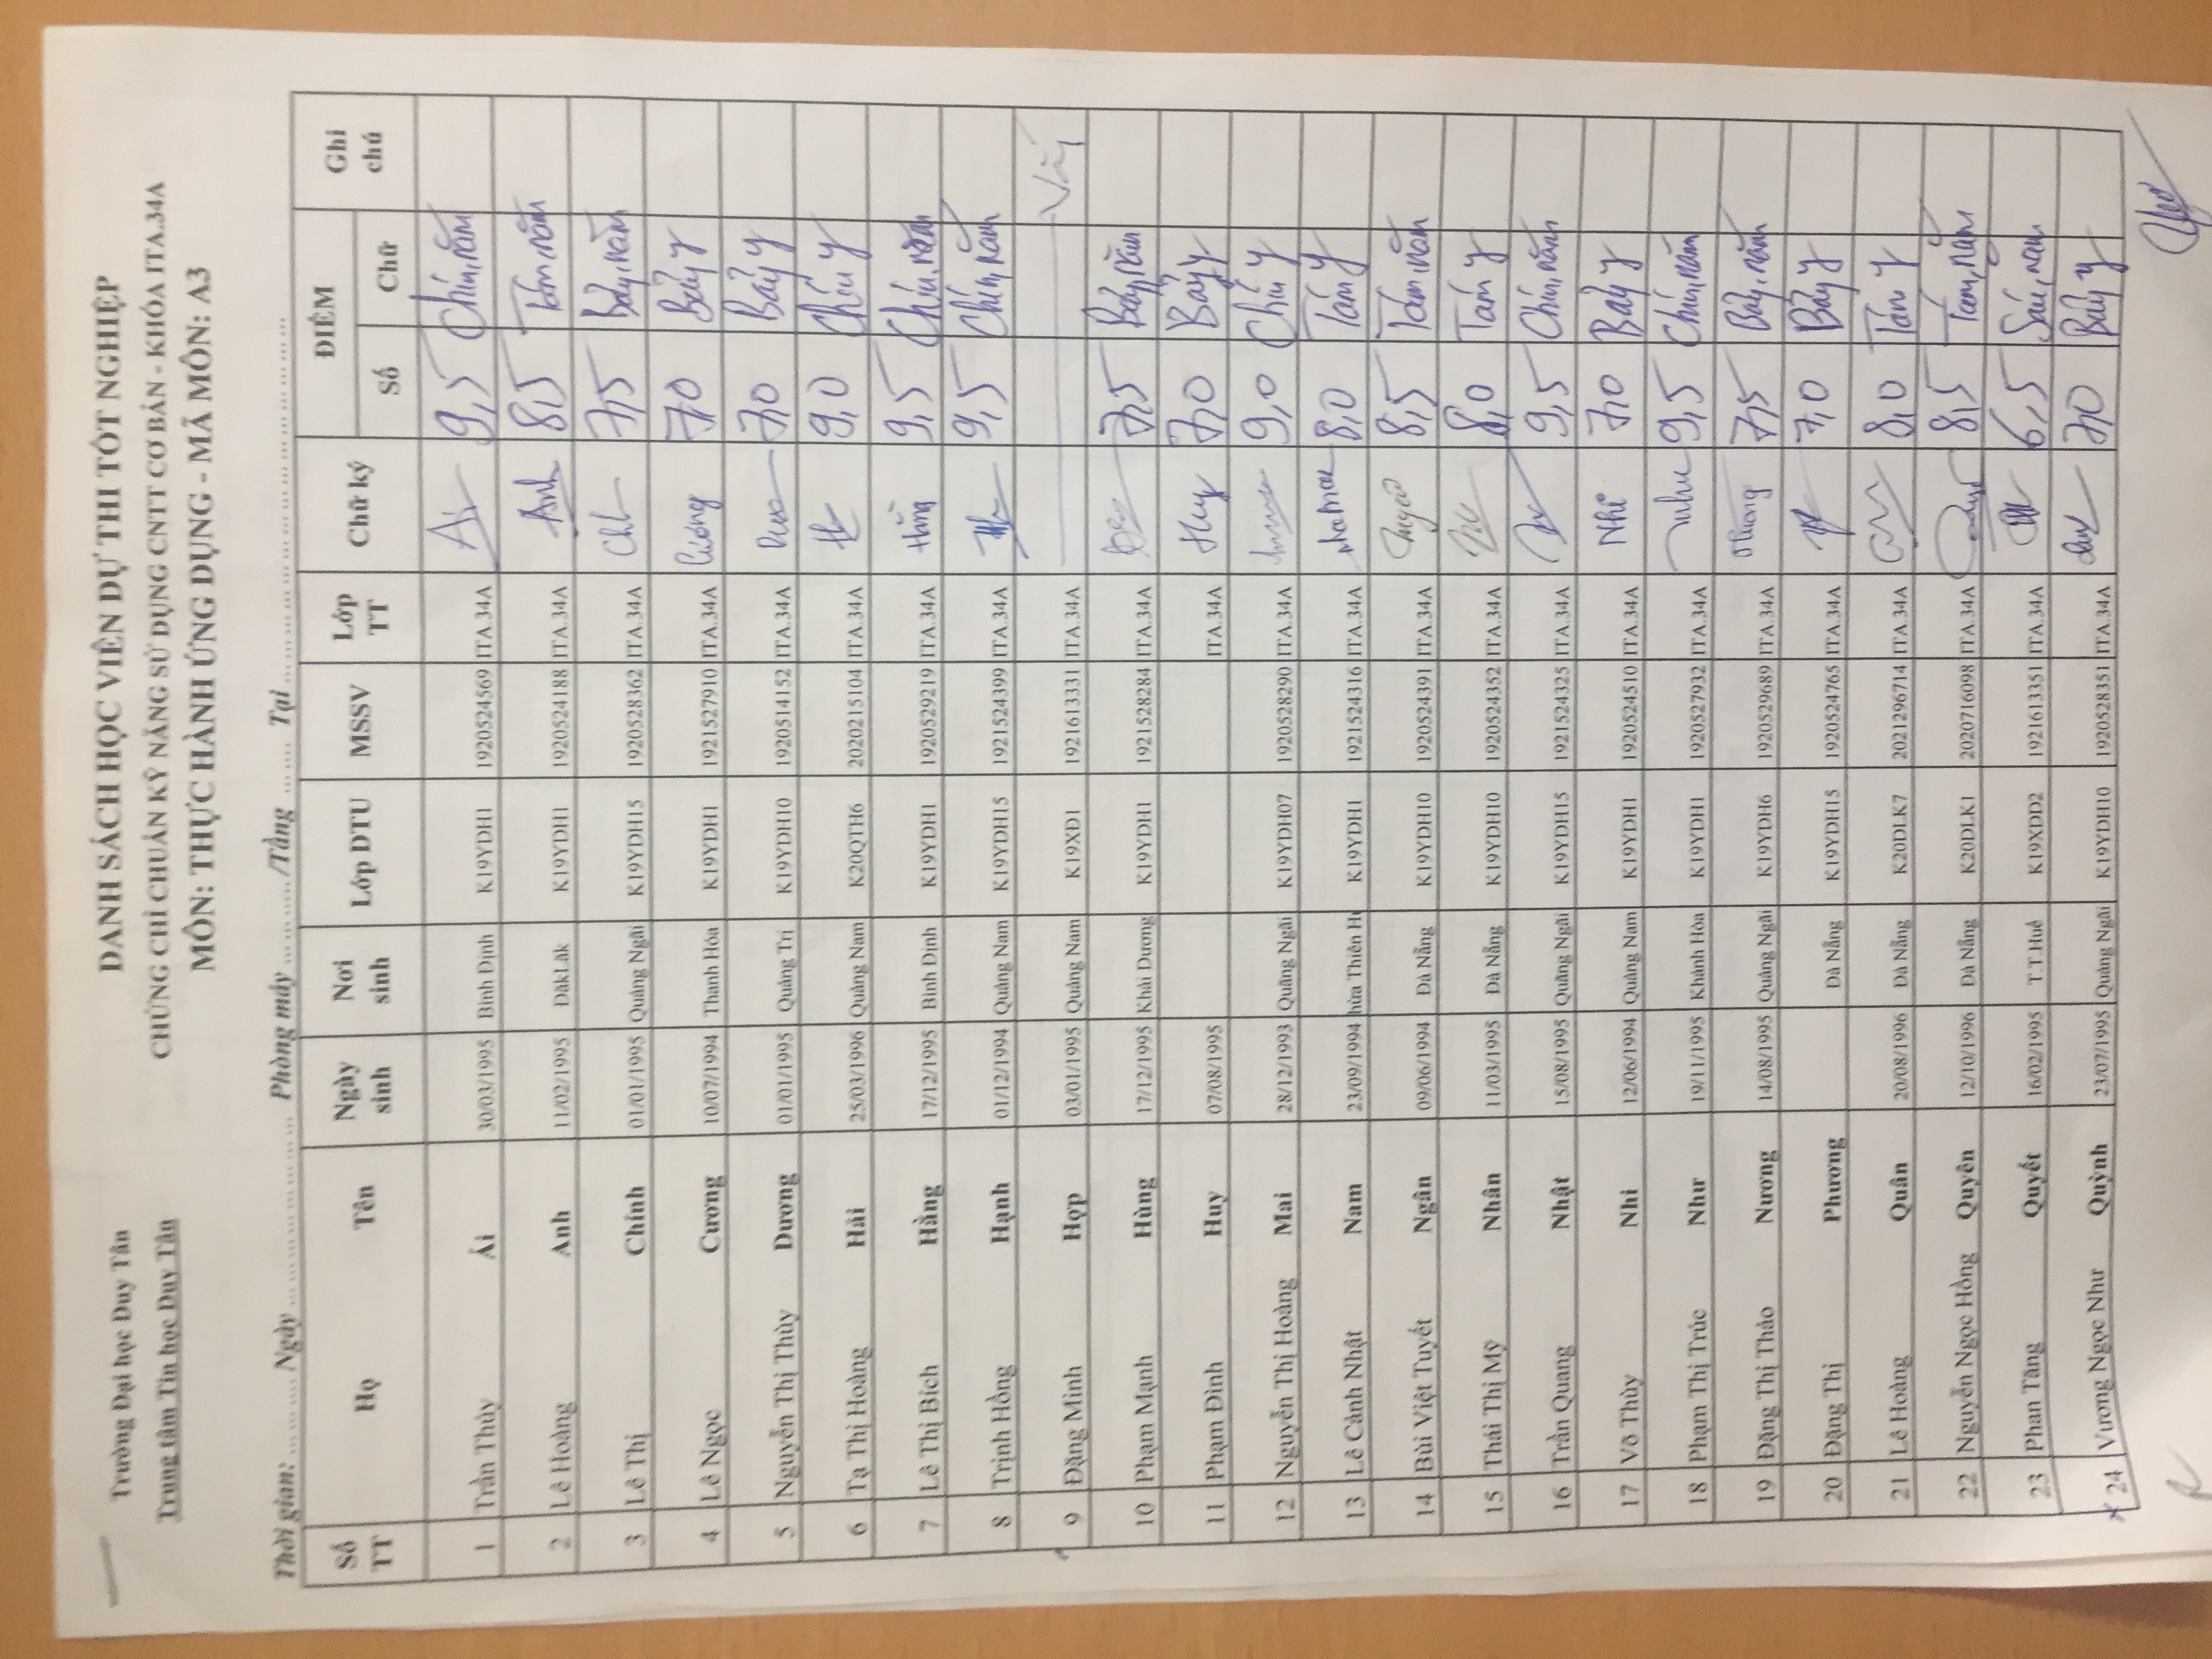 Trường Đại học Duy Tân
Trung tâm Tin học Duy Tân
DANH SÁCH HỌC VIÊN DỰ THI TỐT NGHIỆP
CHỨNG CHỈ CHUẨN KỸ NĂNG SỬ DỤNG CNTT CƠ BẢN - KHÓA ITA.34A
MÔN: THỰC HÀNH ỨNG DỤNG - MÃ MÔN: A3
Thời gian: .......... Ngày .......... Phòng máy ........../Tầng .......... Tại ..........
Số TT Họ Tên Ngày sinh Nơi sinh Lớp DTU MSSV Lớp TT Chữ ký ĐIỂM Số Chữ Ghi chú
1 Trần Thùy Ái 30/03/1995 Bình Định K19YDH1 1920524569 ITA.34A Ái 9,5 Chín, năm
2 Lê Hoàng Anh 11/02/1995 ĐăkLăk K19YDH1 1920524188 ITA.34A Anh 8,5 Tám, năm
3 Lê Thị Chinh 01/01/1995 Quảng Ngãi K19YDH15 1920528362 ITA.34A 7,5 Bảy, năm
4 Lê Ngọc Cương 10/07/1994 Thanh Hóa K19YDH1 1921527910 ITA.34A Cương 7,0 Bảy y
5 Nguyễn Thị Thùy Dương 01/01/1995 Quảng Trị K19YDH10 1920514152 ITA.34A 7,0 Bảy y
6 Tạ Thị Hoàng Hải 25/03/1996 Quảng Nam K20QTH6 2020215104 ITA.34A 9,0 Chín y
7 Lê Thị Bích Hằng 17/12/1995 Bình Định K19YDH1 1920529219 ITA.34A Hằng 9,5 Chín, năm
8 Trịnh Hồng Hạnh 01/12/1994 Quảng Nam K19YDH15 1921524399 ITA.34A 9,5 Chín, năm
9 Đặng Minh Hợp 03/01/1995 Quảng Nam K19XD1 1921613331 ITA.34A Vắng
10 Phạm Mạnh Hùng 17/12/1995 Khải Dương K19YDH1 1921528284 ITA.34A 7,5 Bảy, năm
11 Phạm Đình Huy 07/08/1995 ITA.34A Huy 7,0 Bảy y
12 Nguyễn Thị Hoàng Mai 28/12/1993 Quảng Ngãi K19YDH07 1920528290 ITA.34A 9,0 Chín y
13 Lê Cảnh Nhật Nam 23/09/1994 hừa Thiên H K19YDH1 1921524316 ITA.34A 8,0 Tám y
14 Bùi Việt Tuyết Ngân 09/06/1994 Đà Nẵng K19YDH10 1920524391 ITA.34A 8,5 Tám, năm
15 Thái Thị Mỹ Nhân 11/03/1995 Đà Nẵng K19YDH10 1920524352 ITA.34A 8,0 Tám y
16 Trần Quang Nhật 15/08/1995 Quảng Ngãi K19YDH15 1921524325 ITA.34A 9,5 Chín, năm
17 Võ Thùy Nhi 12/06/1994 Quảng Nam K19YDH1 1920524510 ITA.34A Nhi 7,0 Bảy y
18 Phạm Thị Trúc Như 19/11/1995 Khánh Hòa K19YDH1 1920527932 ITA.34A Như 9,5 Chín, năm
19 Đặng Thị Thảo Nương 14/08/1995 Quảng Ngãi K19YDH6 1920529689 ITA.34A Nương 7,5 Bảy, năm
20 Đặng Thị Phương Đà Nẵng K19YDH15 1920524765 ITA.34A 7,0 Bảy y
21 Lê Hoàng Quân 20/08/1996 Đà Nẵng K20DLK7 2021296714 ITA.34A 8,0 Tám y
22 Nguyễn Ngọc Hồng Quyên 12/10/1996 Đà Nẵng K20DLK1 2020716098 ITA.34A 8,5 Tám, năm
23 Phan Tăng Quyết 16/02/1995 T.T.Huế K19XDD2 1921613351 ITA.34A 6,5 Sáu, năm
24 Vương Ngọc Như Quỳnh 23/07/1995 Quảng Ngãi K19YDH10 1920528351 ITA.34A 7,0 Bảy y